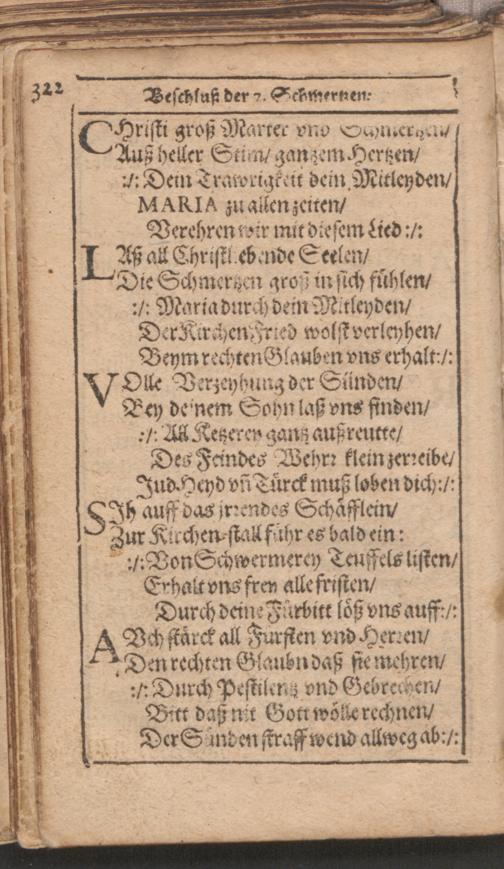 322
Beschluß der 7. Schmertzen.
CHristi groß Marter vnd Schmertzen/
Auß heller Stim/ gantzem Hertzen/
:/: Dein Trawrigkeit dein Mitleyden/
MARIA zu allen zeiten/
Verehren wir mit diesem Lied :/:
LAß all Christliebende Seelen/
Die Schmertzen groß in sich fühlen/
:/: Maria durch dein Mitleyden/
Der Kirchen Fried wolst verleyhen/
Beym rechten Glauben vns erhalt:/:
VOlle Verzeyhung der Sünden/
Bey deinem Sohn laß vns finden/
:/: All Ketzerey gantz außreutte/
Des Feindes Wehrr klein zerreibe/
Jud Heyd vñ Türck muß loben dich:/:
SIh auff das jrrendes Schäfflein/
Zur Kirchen-stall führ es bald ein :
:/: Von Schwermerey Teuffels listen/
Erhalt vns frey alle fristen/
Durch deine Fürbitt löß vns auff:/:
AVch stärck all Fursten vnd Herren/
Den rechten Glaubn daß sie mehren/
:/: Durch Pestilentz vnd Gebrechen/
Bitt daß nit Gott wölle rechnen/
Der Sünden straff wend allweg ab:/: